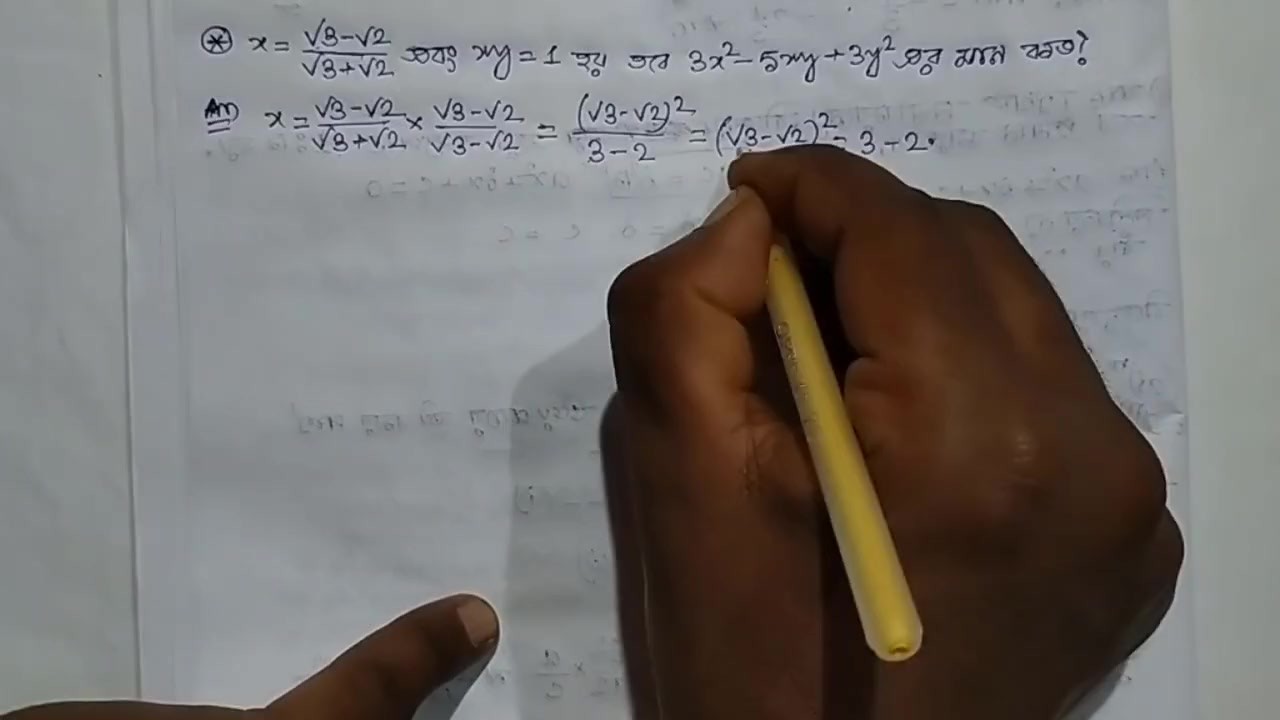 ⊛ x = √3-√2/√3+√2 এবং xy = 1 হয় তবে 3x² - 5xy + 3y² এর মান কত?
Ans x = √3-√2/√3+√2 × √3-√2/√3-√2 = (√3-√2)²/3-2 = (√3-√2)² = 3-2.